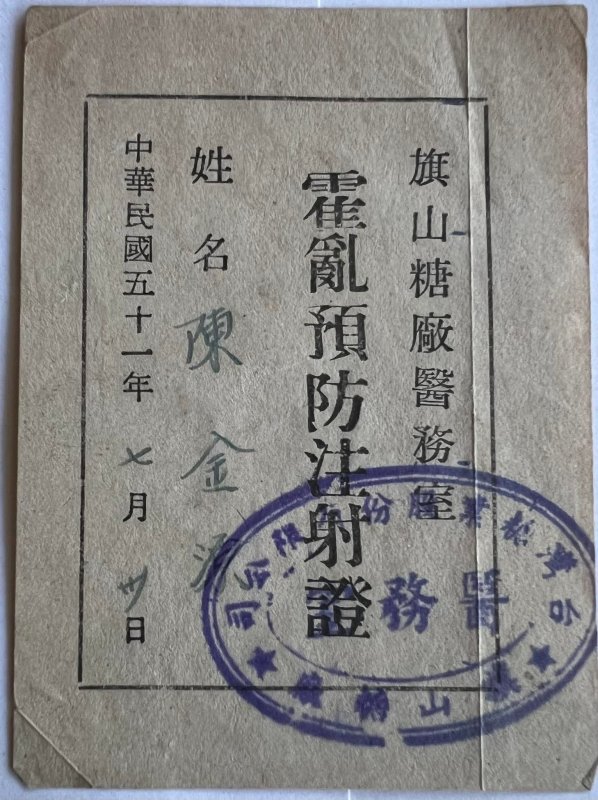 旗山糖廠醫務室
霍亂預防注射證
姓名 陳金
中華民國五十一年 七月 卅日
台灣糖業股份有限公司
醫務室
旗山糖廠